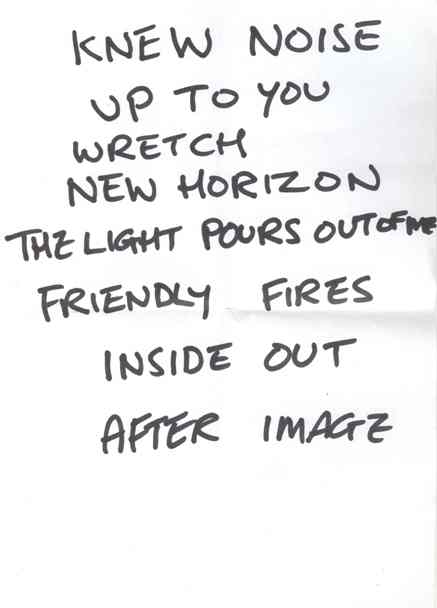 KNEW NOISE
UP TO YOU
WRETCH
NEW HORIZON
THE LIGHT POURS OUT OF ME
FRIENDLY FIRES
INSIDE OUT
AFTER IMAGE